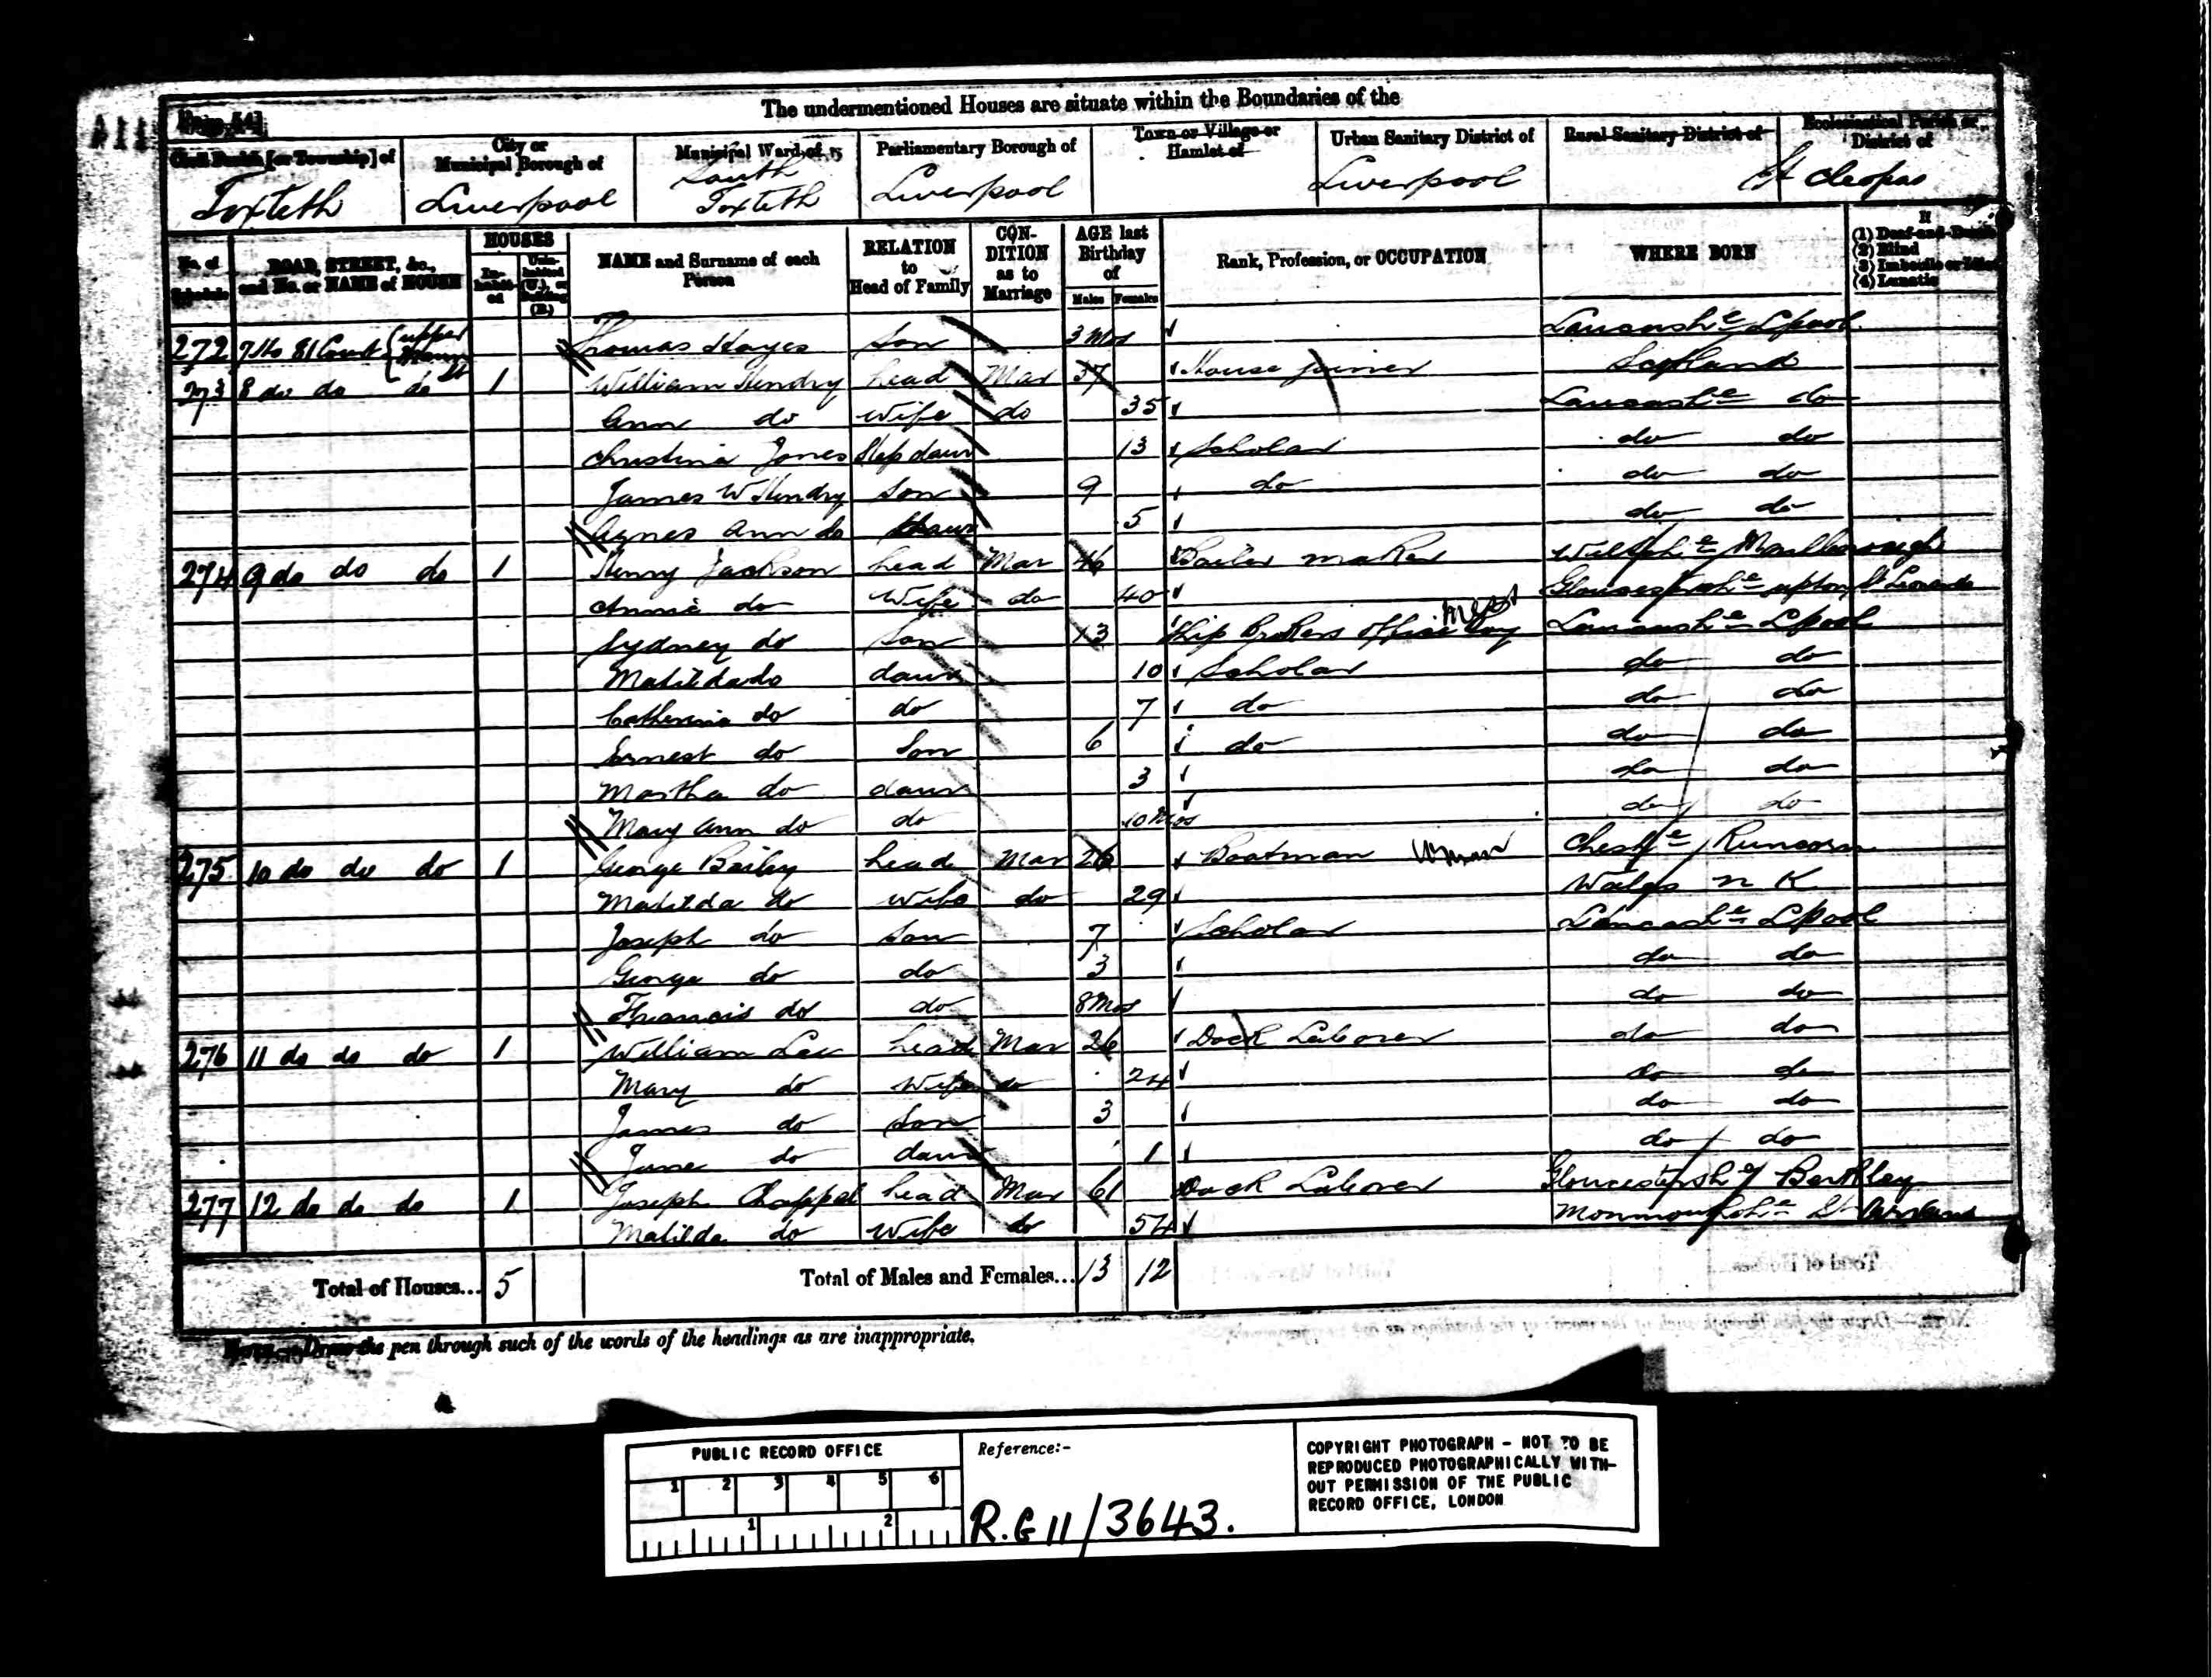 The undermentioned Houses are situate within the Boundaries of the
Civil Parish [or Township] of
Toxteth
City or Municipal Borough of
Liverpool
Municipal Ward of
South Toxteth
Parliamentary Borough of
Liverpool
Town or Village or Hamlet of
Urban Sanitary District of
Liverpool
Rural Sanitary District of
Ecclesiastical Parish or District of
St Cleopas
No. of Schedule
ROAD, STREET, &c., and No. or NAME of HOUSE
HOUSES
Inhabited
Uninhabited (U.), or Building (B.)
NAME and Surname of each Person
RELATION to Head of Family
CONDITION as to Marriage
AGE last Birthday of
Males Females
Rank, Profession, or OCCUPATION
WHERE BORN
If
(1) Deaf-and-Dumb
(2) Blind
(3) Imbecile or Idiot
(4) Lunatic
272 7 Ho 81 Court upper St Thomas Hayes Son 3 Mos Lancashe Lpool
273 8 do do do 1 William Hendry head Mar 37 House joiner Scotland
Ann do Wife do 35 Lancashe do
Christina Jones Stepdaur 13 Scholar do do
James W Hendry Son 9 do do do
Agnes Ann do daur 5 do do
274 9 do do do 1 Henry Jackson head Mar 46 Boiler maker Wiltshe Marlborough
Annie do Wife do 40 Gloucestershe upton St Leonards
Sydney do Son 13 Ship Brokers office Boy Mess Lancashe Lpool
Matilda do daur 10 Scholar do do
Catherine do do 7 do do do
Ernest do Son 6 do do do
Martha do daur 3 do do
Mary Ann do do 10 Mos do do
275 10 do do do 1 George Bailey head Mar 26 Boatman Cheshe Runcorn
Matilda do wife do 29 Wales N K
Joseph do Son 7 Scholar Lancashe Lpool
George do do 3 do do
Francis do do 8 Mos do do
276 11 do do do 1 William Lee head Mar 26 Dock Laborer do do
Mary do Wife do 24 do do
James do Son 3 do do
Jane do daur 1 do do
277 12 do do do 1 Joseph Chappel head Mar 61 Dock Laborer Gloucestersh Berkley
Matilda do Wife do 54 Monmouthshe St
Total of Houses... 5 Total of Males and Females... 13 12
Draw the pen through such of the words of the headings as are inappropriate.
PUBLIC RECORD OFFICE
1 2 3 4 5 6
1 2
Reference:-
R.G 11/3643.
COPYRIGHT PHOTOGRAPH - NOT TO BE
REPRODUCED PHOTOGRAPHICALLY WITH-
OUT PERMISSION OF THE PUBLIC
RECORD OFFICE, LONDON